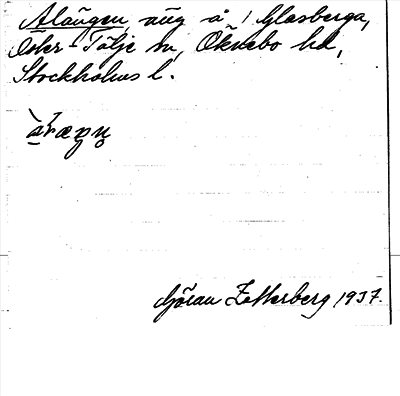 Alängen, äng å / Glasberga,
Öster-Tälje sn, Öknebo hd,
Stockholms l.
Göran Zetterberg 1937.